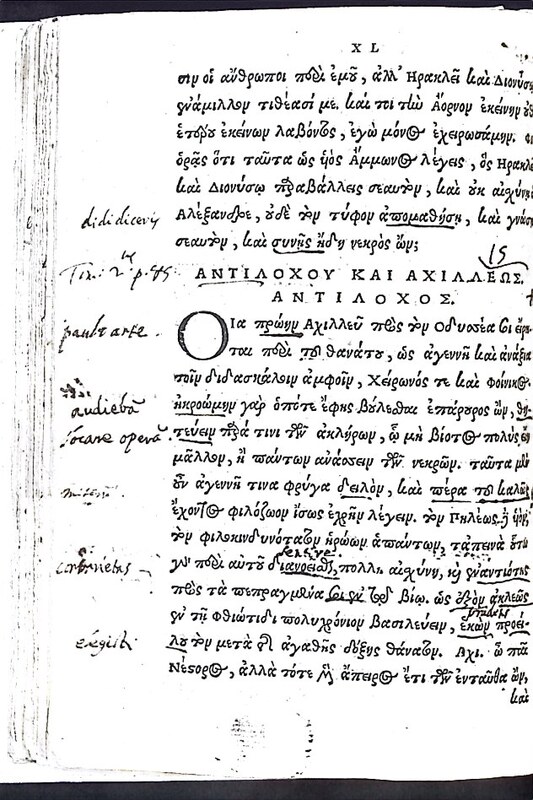 XL
σιν οἱ ἄνθρωποι περὶ ἐμοῦ, ἀλλ' Ἡρακλεῖ καὶ Διονύσῳ
ἐνάμιλλον τιθέασί με, καί τοι τὴν Ἄορνον ἐκείνην οὐδ
ἑτέρου ἐκείνων λαβόντος, ἐγὼ μόνος ἐχειρωσάμην.
ὁρᾷς ὅτι ταῦτα ὡς υἱὸς Ἄμμωνος λέγεις, ὃς Ἡρακλεῖ
καὶ Διονύσῳ παραβάλλεις σεαυτὸν, καὶ οὐκ αἰσχύνῃ
didiceris
Ἀλέξανδρε, οὐδὲ τὸν τύφον ἀπομαθήσῃ, καὶ γνώσῃ
σεαυτὸν, καὶ συνήσῃς ἤδη νεκρὸς ὤν;
15
ΑΝΤΙΛΟΧΟΥ ΚΑΙ ΑΧΙΛΛΕΩΣ.
ΑΝΤΙΛΟΧΟΣ.
paulo ante.
Οἷα πρώην Ἀχιλλεῦ πρὸς τὸν Ὀδυσσέα σοι εἴρη-
ται περὶ τοῦ θανάτου, ὡς ἀγεννῆ καὶ ἀνάξια
τοῖν διδασκάλοιν ἀμφοῖν, Χείρωνός τε καὶ Φοίνικος.
audiebā
ἠκροώμην γὰρ ὁπότε ἔφης βούλεσθαι ἐπάρουρος ὢν, θη-
locare operā.
τεύειν παρά τινι τῶν ἀκλήρων, ᾧ μὴ βίοτος πολὺς εἴη
μᾶλλον, ἢ πάντων ἀνάσσειν τῶν νεκρῶν. ταῦτα μὲν
οὖν ἀγεννῆ τινα φρύγα δειλὸν, καὶ πέρα τοῦ καλῶς
ἔχοντος φιλόζωον ἴσως ἐχρῆν λέγειν. τὸν Πηλέως δὲ υἱὸν,
τὸν φιλοκινδυνότατον ἡρώων ἁπάντων, ταπεινὰ οὕτω
contrarietas
γε περὶ αὐτοῦ διανοεῖσθαι, πολλὴ αἰσχύνη, καὶ ἐναντιότης
πρὸς τὰ πεπραγμένα σοι ἐν τῷ βίῳ. ὡς ἐξὸν ἀκλεῶς
ἐν τῇ Φθιώτιδι πολυχρόνιον βασιλεύειν, ἑκὼν προεί-
elegisti
λου τὸν μετὰ τῆς ἀγαθῆς δόξης θάνατον. Αχι. ὦ παῖ
Νέστορος, ἀλλὰ τότε μὲν ἄπειρος ἔτι τῶν ἐνταῦθα ὢν,
καὶ